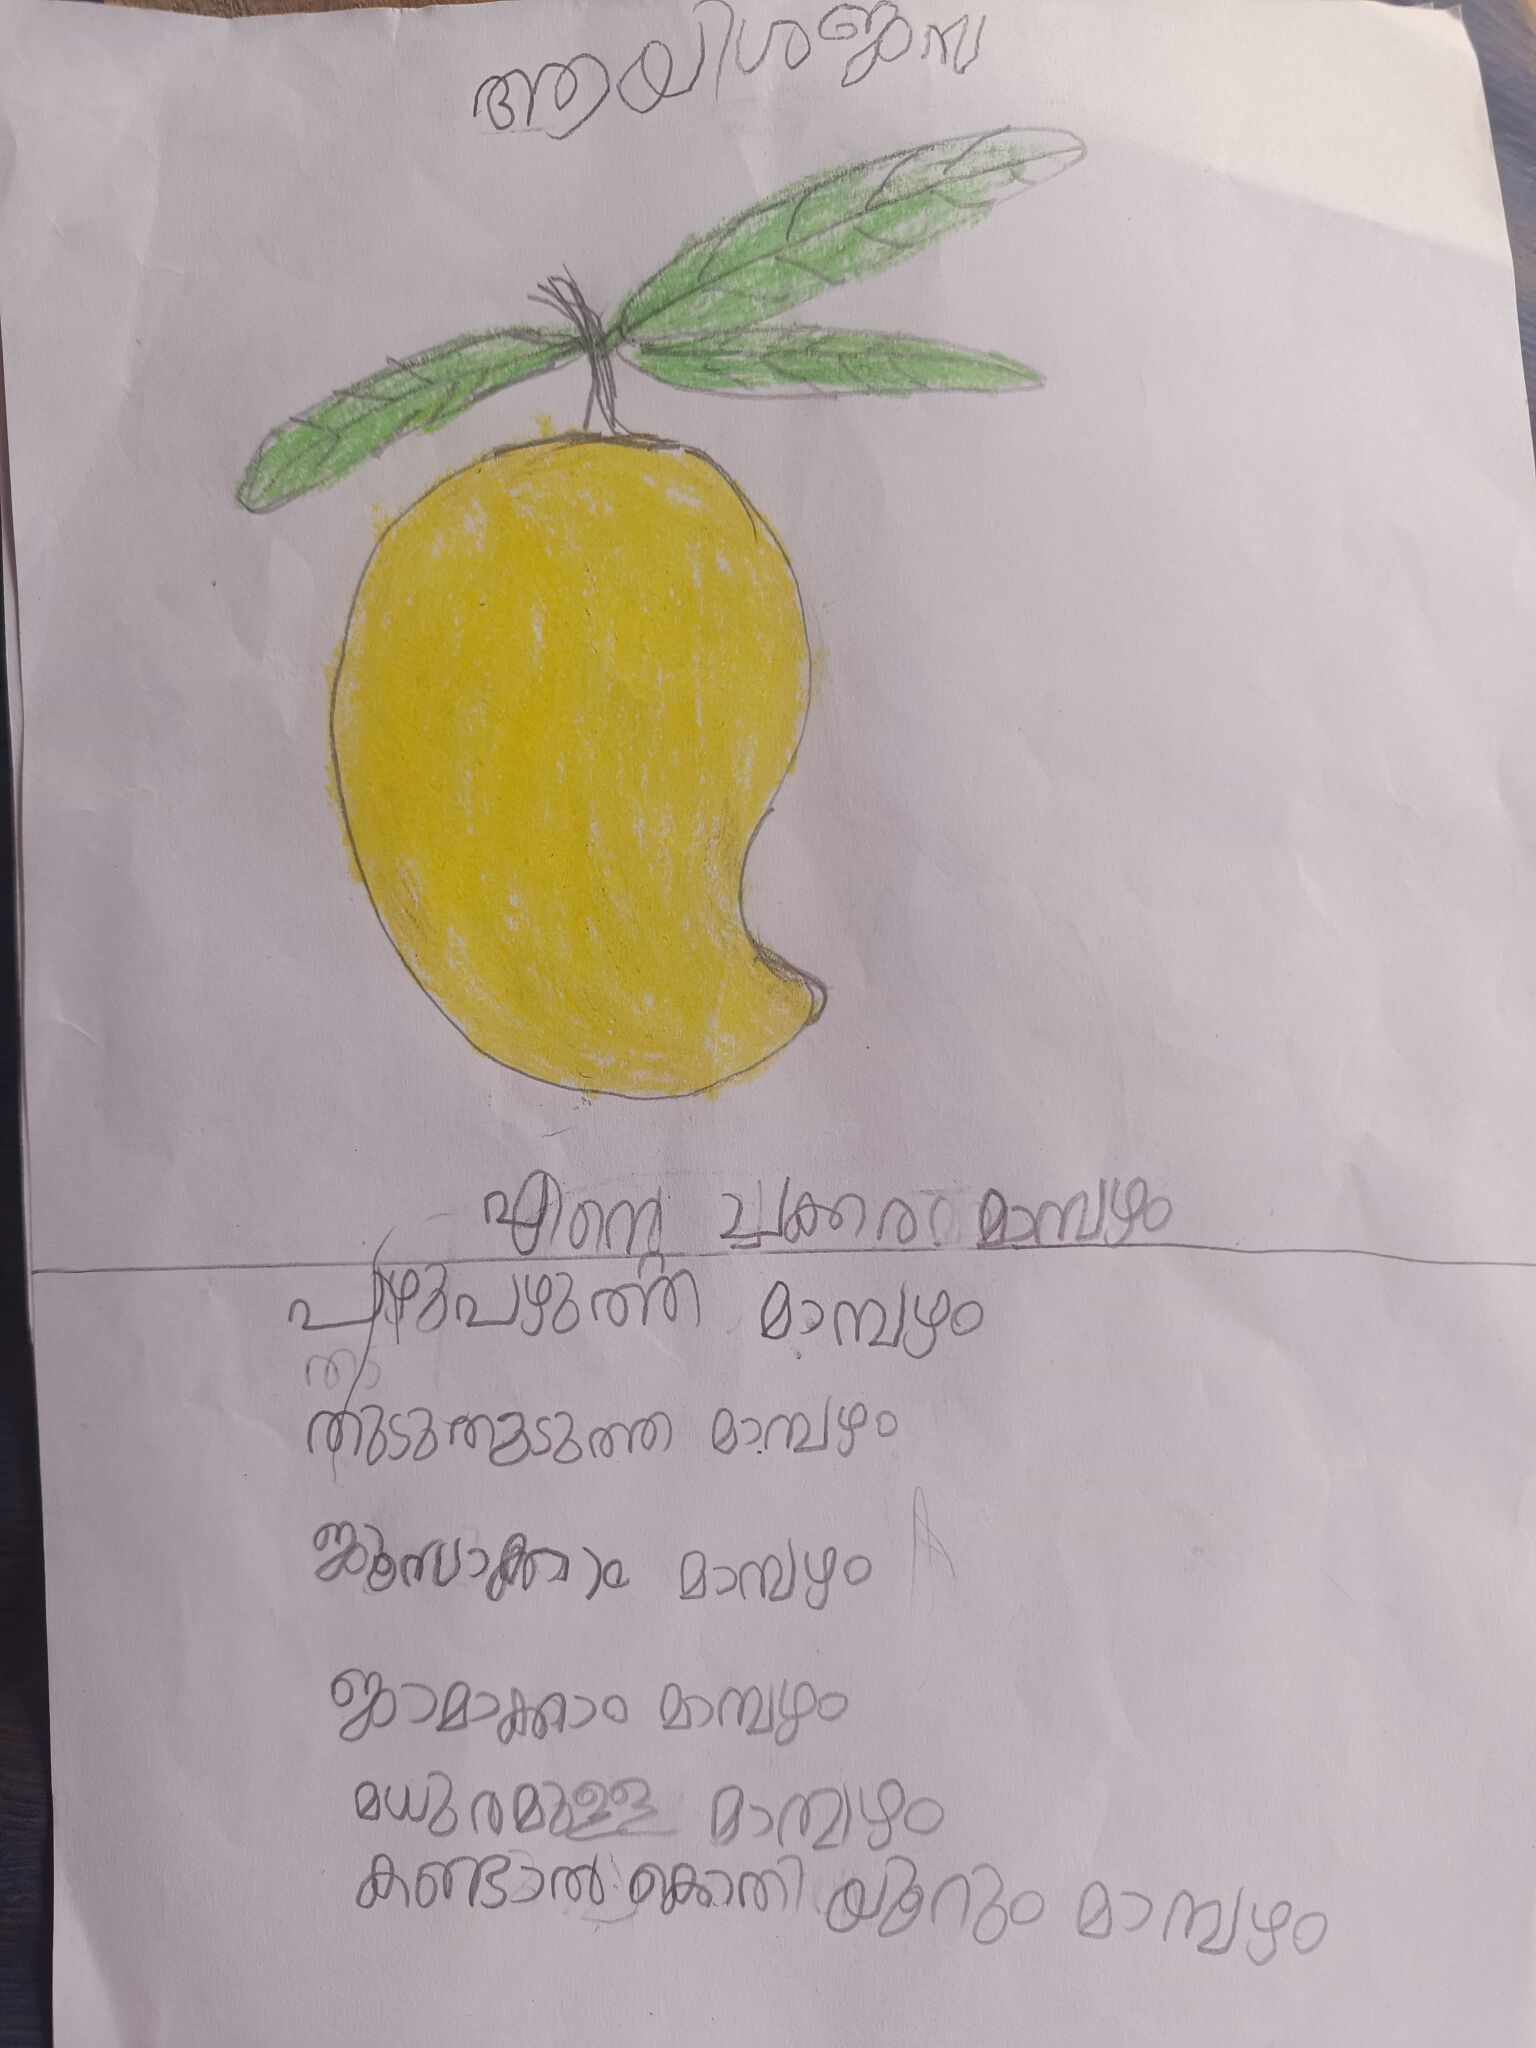 ആയിശജന്ന
എന്റെ ച്ചക്കര മാമ്പഴം
പഴുപഴുത്ത മാമ്പഴം
താ
തുടുതുടുത്ത മാമ്പഴം
ജൂസാക്കാം മാമ്പഴം
ജാമാക്കാം മാമ്പഴം
മധുരമുള്ള മാമ്പഴം
കണ്ടാൽ കൊതി യൂറും മാമ്പഴം